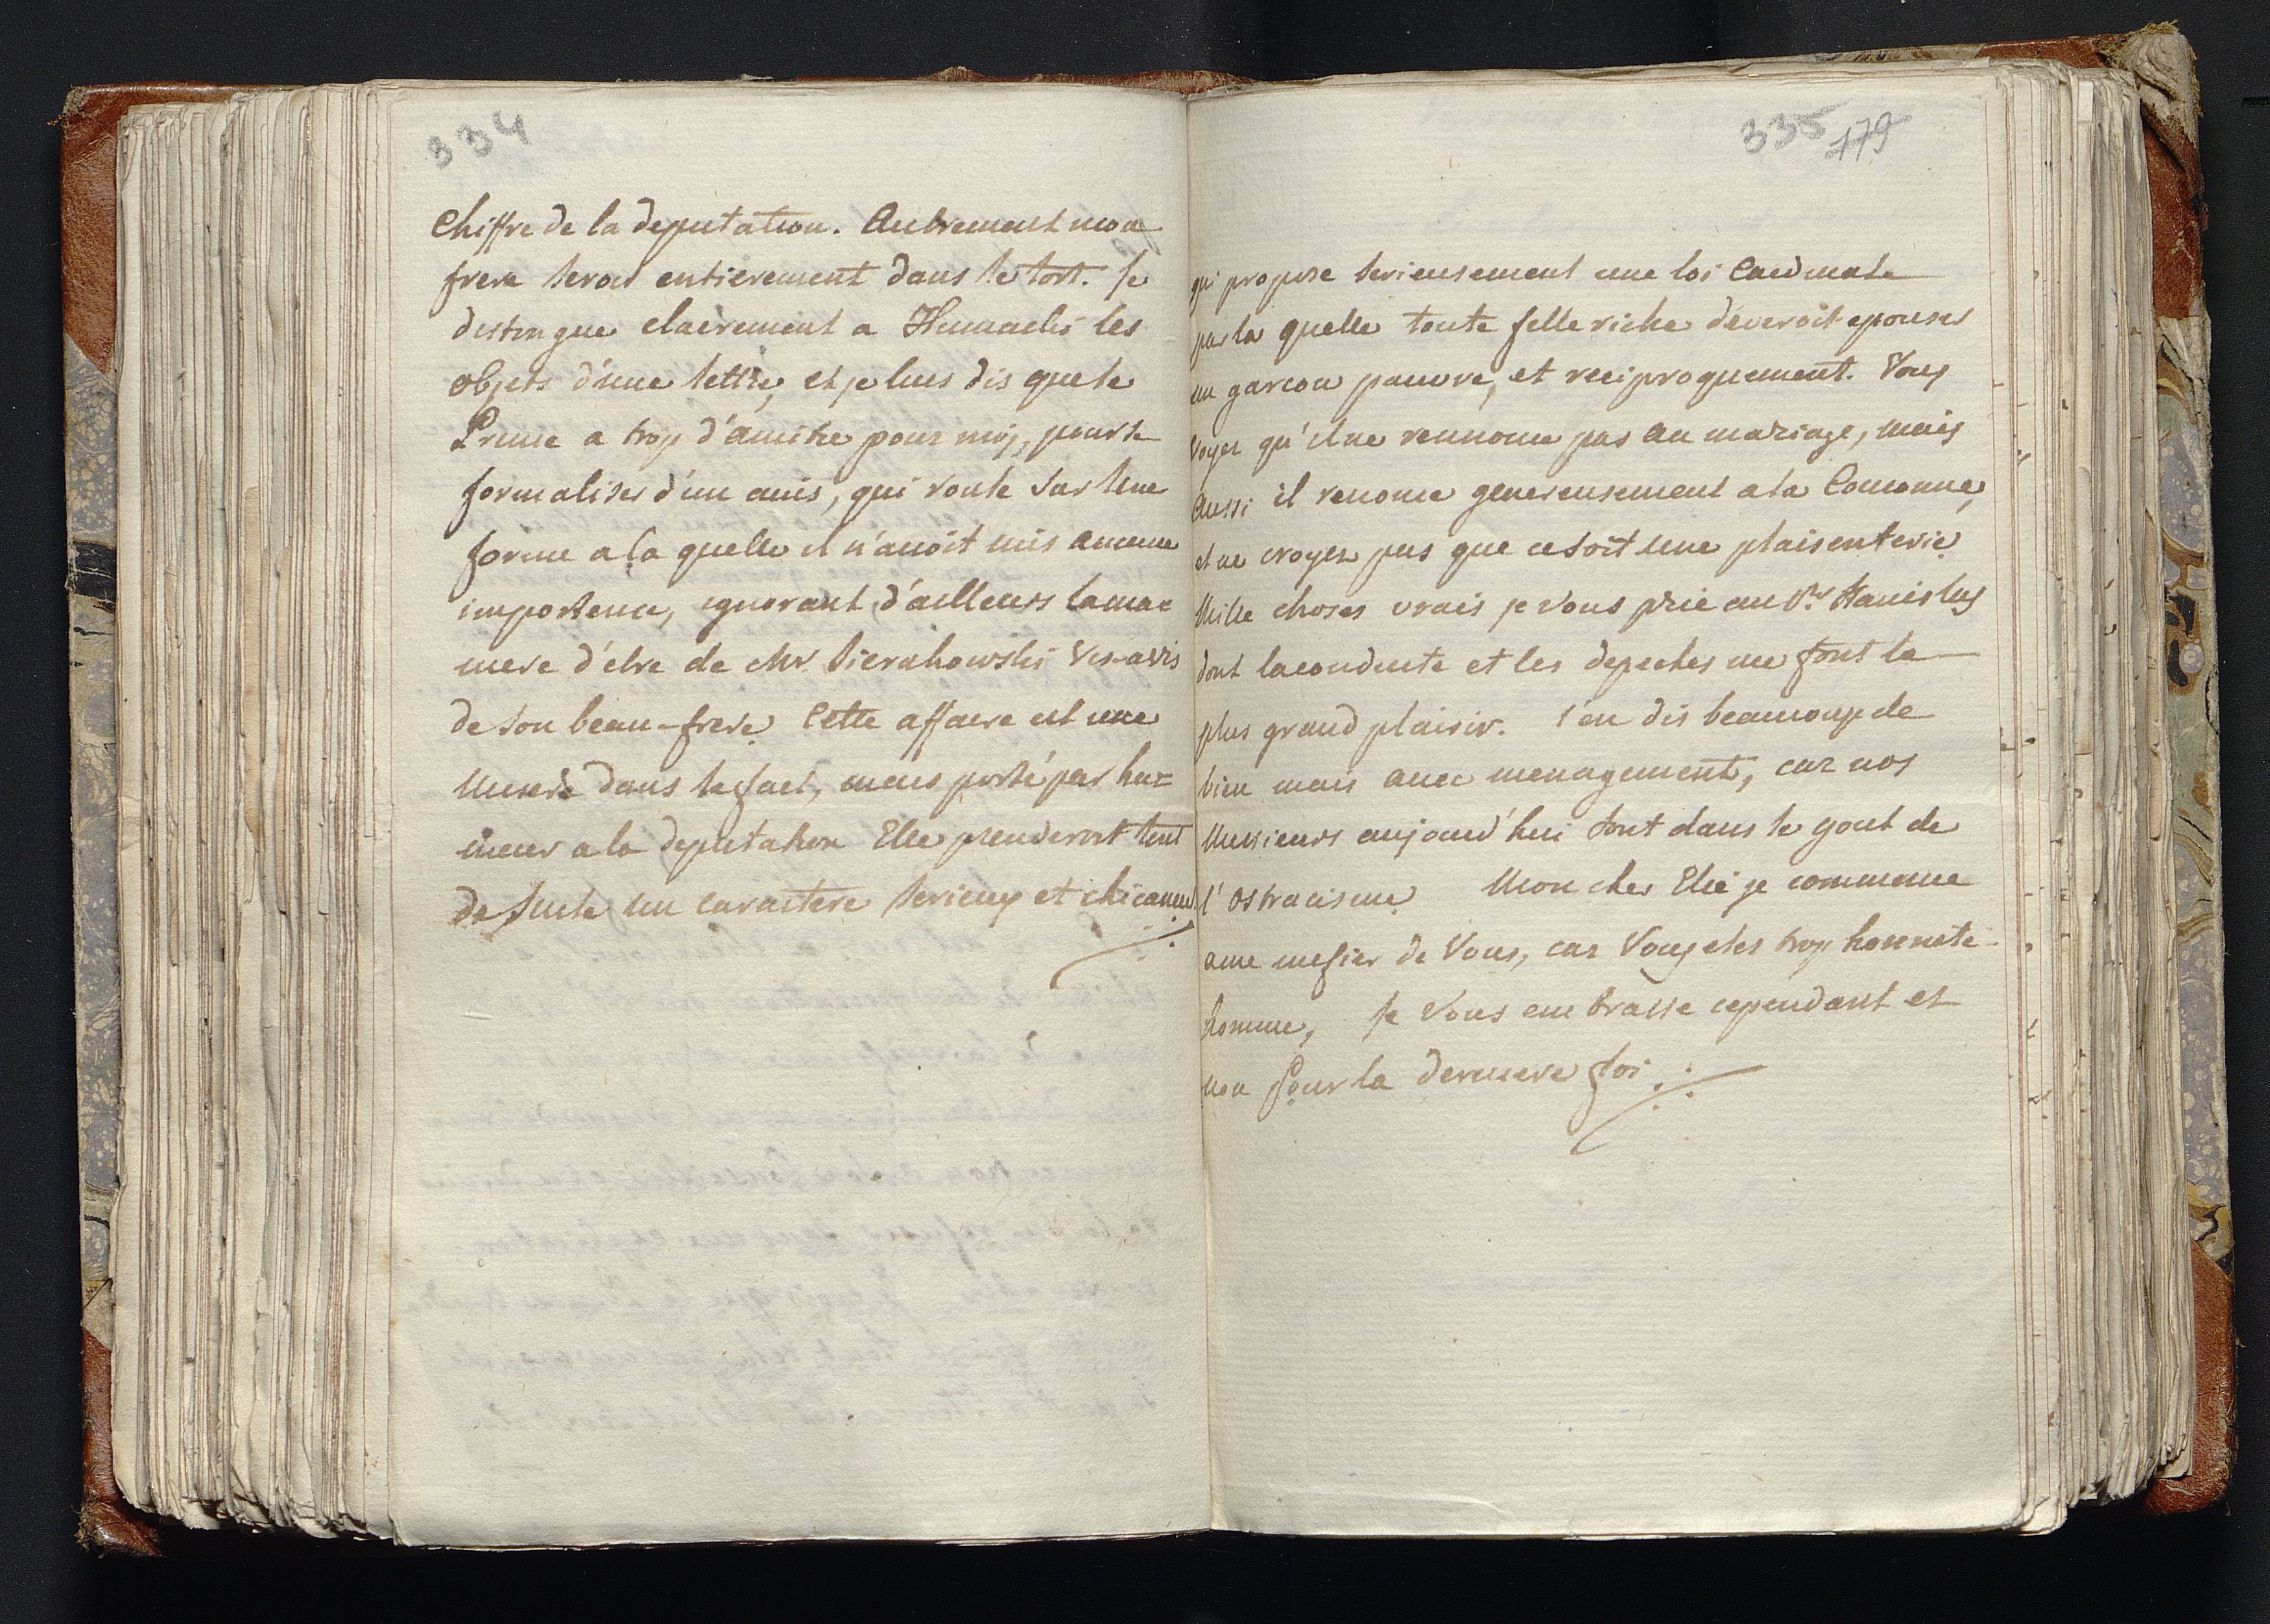 334
Chiffre de la deputation. Autrement mon
frere seroit entierement dans le tort. Je
distingue clairement a les
objets d'une lettre, et je lui dis que le
Prince a trop d'amitie pour moy, pour se
formaliser d'un avis, qui roule sur une
forme a la quelle il n'avoit mis aucune
importence, ignorant d'ailleurs la ma=
niere d'etre de chr. Sierakowski vis-a vis
de son beau-frere. Cette affaire est une
misere dans le fact, mais porté par hu=
meur a la deputation Elle prenderoit tout
de suite un caractere serieux et chicaneur
335 179
qui propose serieusement une loi Cardinale
par la quelle toute fille riche deveroit epouser
un garcon pauvre, et reciproquement. Vous
voyez qu'il ne rennonce pas au mariage, mais
Aussi il renonce genereusement a la Couronne,
et ne croyez pas que ce soit une plaisenterie
Mille choses vrais je vous prie au Pce Stanislas
dont la conduite et les depeches me font le
plus grand plaisir. J'en dis beaucoup de
bien mais avec menagement, car nos
Messieurs aujourd'hui sont dans le gout de
l'Ostracisme Mon cher Elie je commence
a me mefier de Vous, car Vous etes trop honnete
homme, Je Vous embrasse cependant et
non Pour la derniere foi